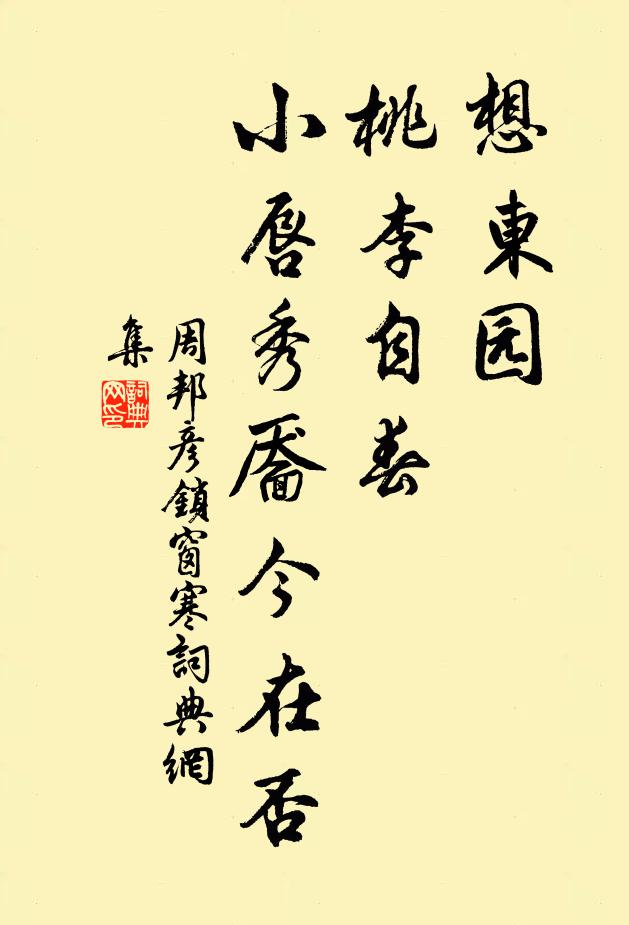 想東园
桃李自春
小唇秀靥今在否
周邦彦鎖窗寒詞典網
集
詞典
网印